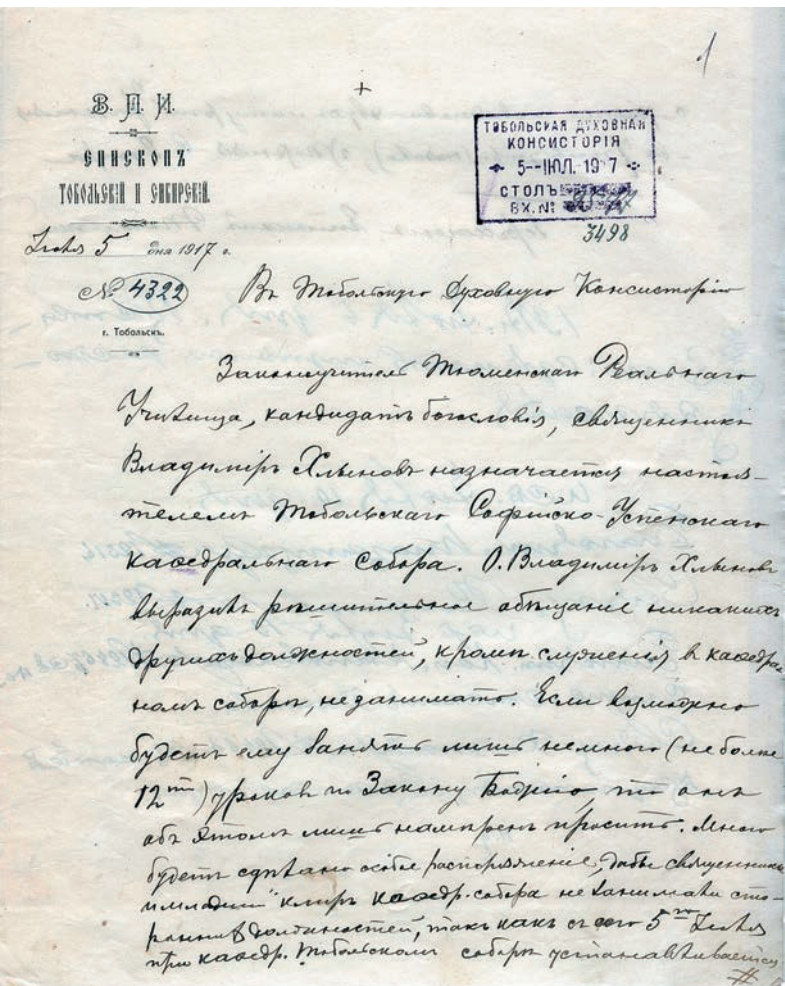 1
В. П. И.
ЕПИСКОПЪ
ТОБОЛЬСКІЙ И СИБИРСКІЙ.
Іюля 5 дня 1917 г.
№ 4322
г. Тобольскъ.
ТОБОЛЬСКАЯ ДУХОВНАЯ
КОНСИСТОРІЯ
5--ІЮЛ. 1917
СТОЛЪ
ВХ. №
3498
Въ Тобольскую Духовную Консисторію
Законоучитель Тюменскаго Реальнаго
Училища, кандидатъ богословія, священникъ
Владиміръ Хлыновъ назначается настоя-
телемъ Тобольскаго Софійско-Успенскаго
каѳедральнаго собора. О. Владиміръ Хлыновъ
выразилъ рѣшительное обѣщаніе никакихъ
другихъ должностей, кромѣ служенія въ каѳедраль
номъ соборѣ, не занимать. Если возможно
будетъ ему занять лишь немного (не болѣе
12ти) уроковъ по Закону Божію, то онъ
объ этомъ лишь намѣренъ просить. Мною
будетъ сдѣлано особое распоряженіе, дабы священники
и младшій клиръ каѳедр. собора не занимали сто-
роннихъ должностей, такъ какъ съ сего 5го Іюля
при каѳедр. Тобольскомъ соборѣ устанавливается